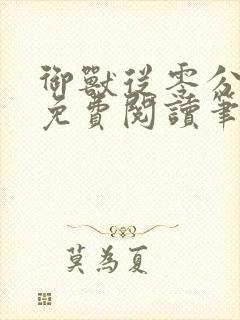 御獸從零分
免費閱讀筆
莫為夏